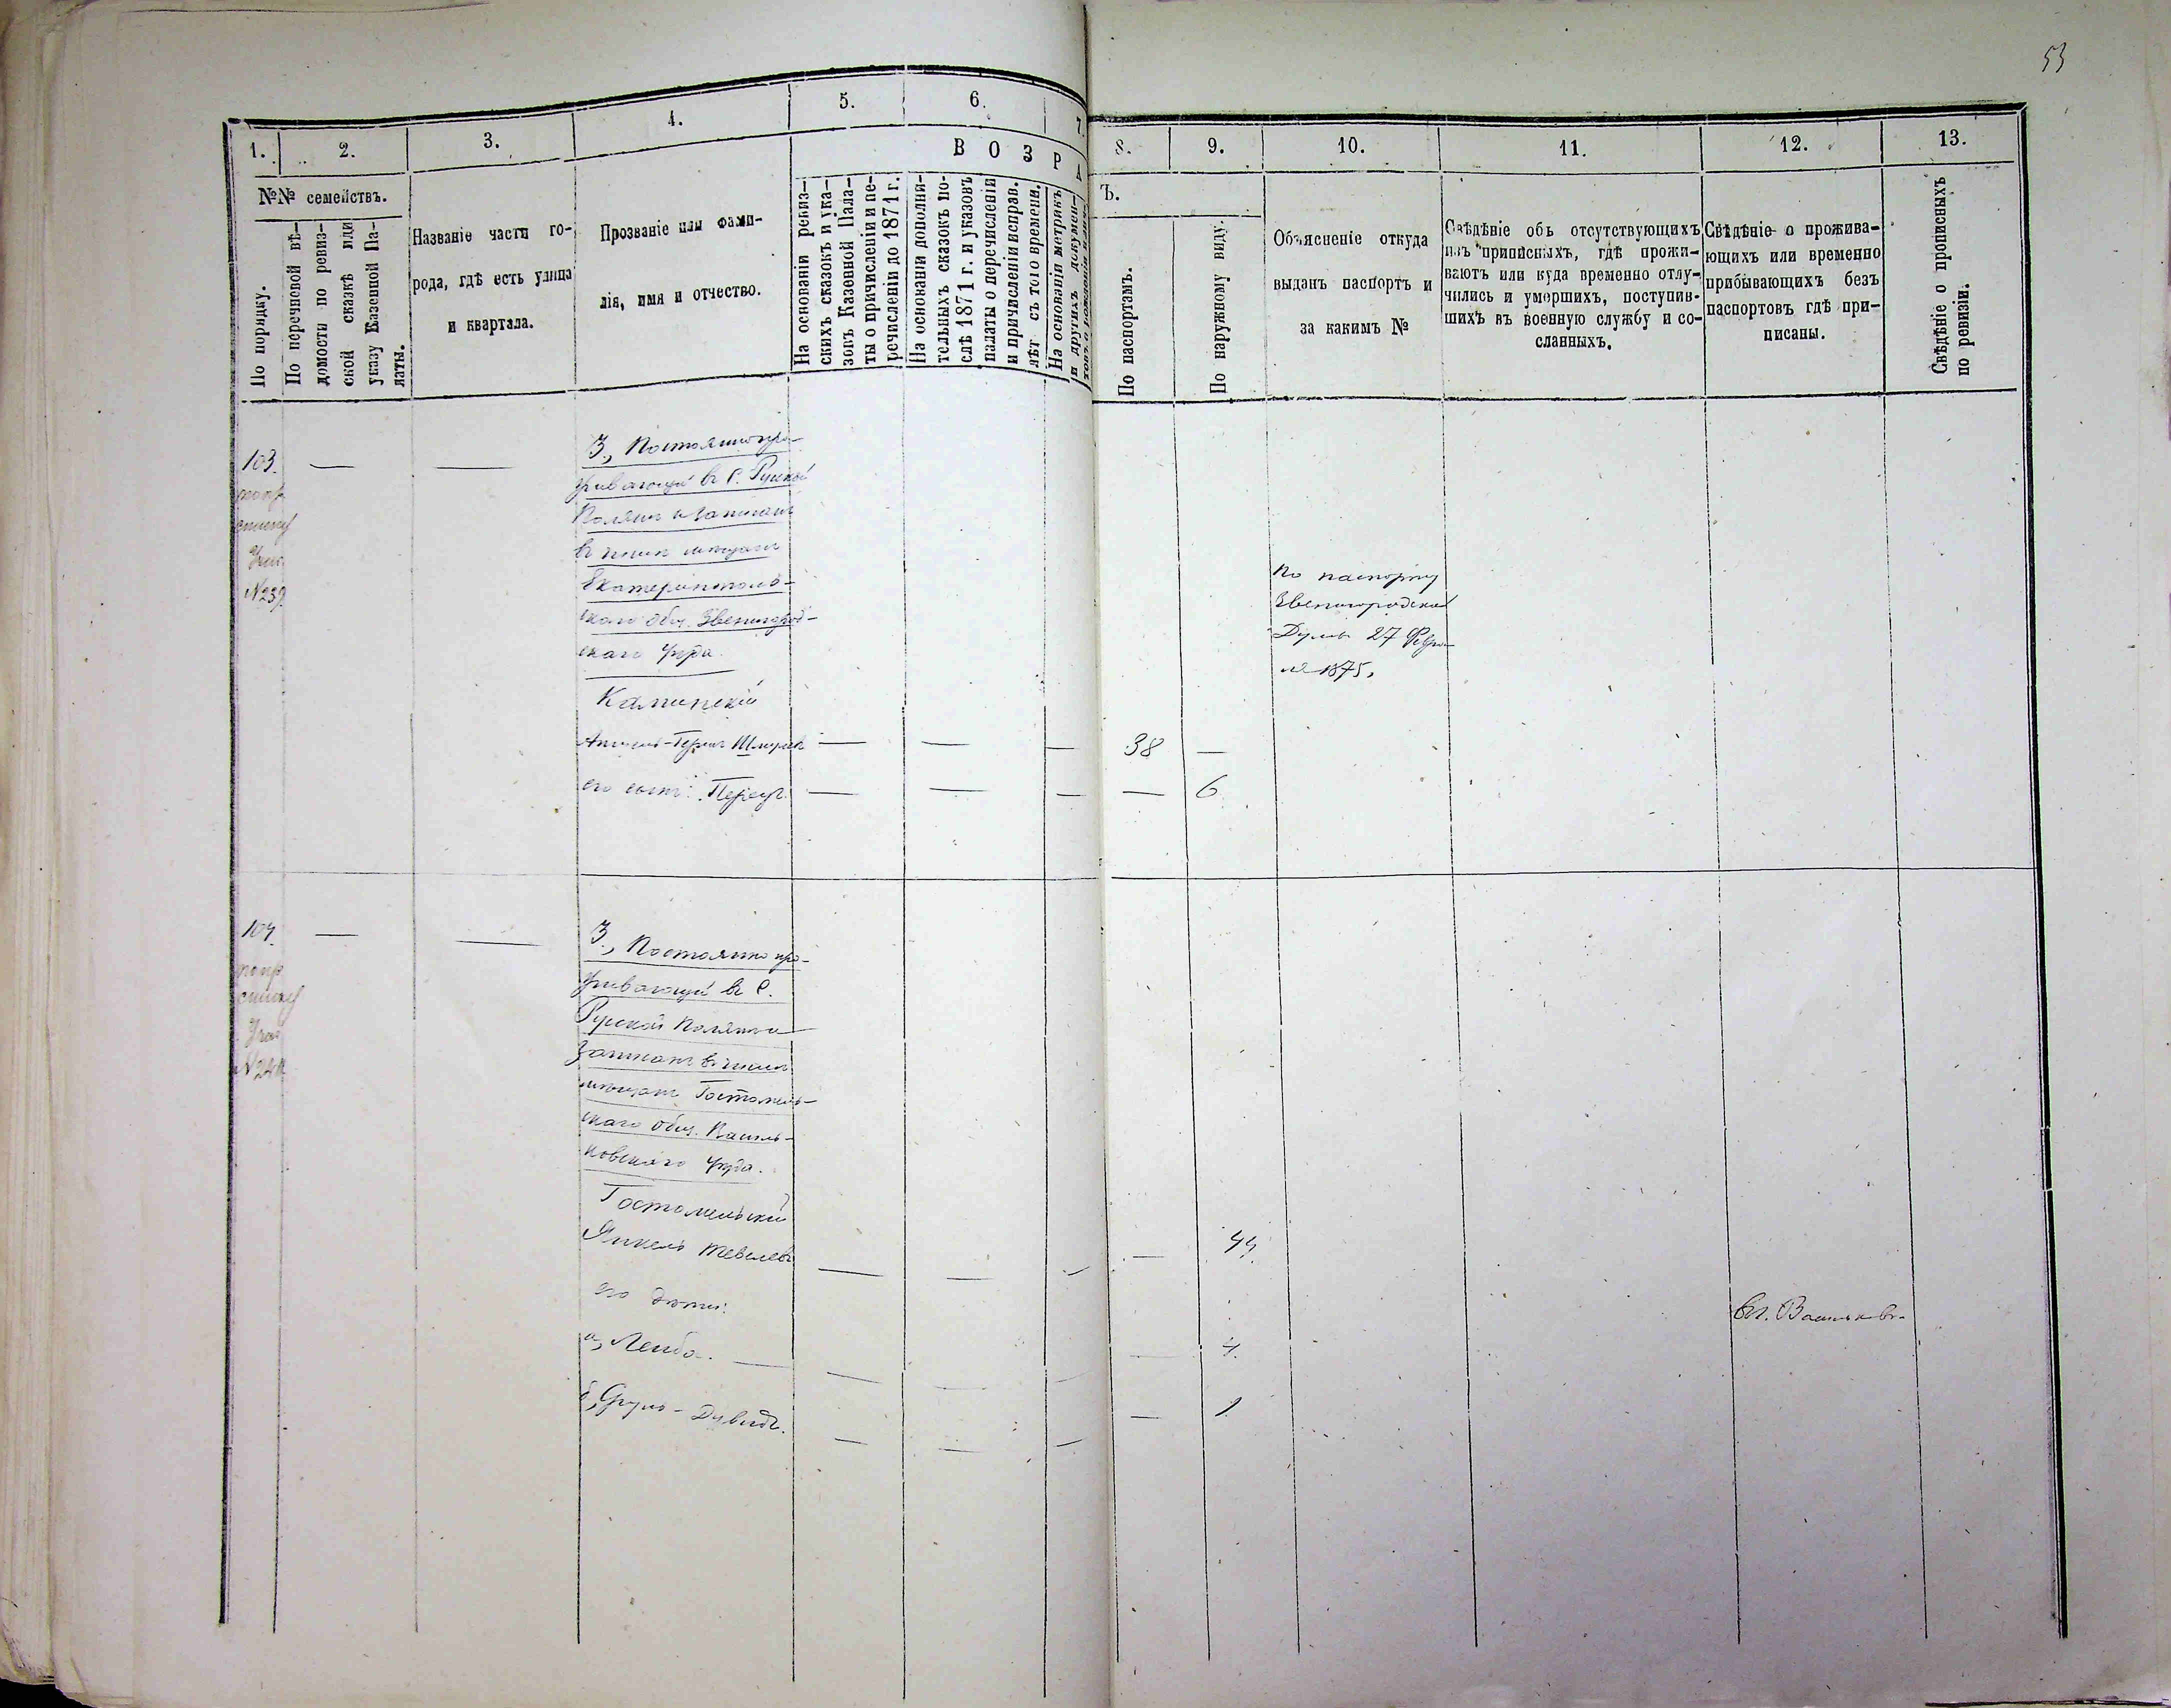 53
1. 2. 3. 4. 5. 6. 7.
8. 9. 10. 11. 12. 13.
№№ семействъ.
По порядку.
По перечновой вѣ-
домости по ревиз-
ской сказкѣ или
указу Казенной Па-
латы.
Названіе части го-
рода, гдѣ есть улица
и квартала.
Прозваніе или фами-
лія, имя и отчество.
ВОЗРА
Ъ.
На основаніи ревиз-
скихъ сказокъ и ука-
зовъ Казенной Пала-
ты о причисленіи и пе-
речисленіи до 1871 г.
На основаніи дополни-
тельныхъ сказокъ по-
слѣ 1871 г. и указовъ
палаты о перечисленіи
и причисленіи исправ.
лѣт съ того времени.
На основаніи метрикъ
и другихъ докумен-
По паспортамъ.
По наружному виду.
Объясненіе откуда
выданъ паспортъ и
за какимъ №
Свѣдѣніе объ отсутствующихъ
изъ приписныхъ, гдѣ прожи-
ваютъ или куда временно отлу-
чились и умершихъ, поступив-
шихъ въ военную службу и со-
сланныхъ.
Свѣдѣніе о прожива-
ющихъ или временно
прибывающихъ безъ
паспортовъ гдѣ при-
писаны.
Свѣдѣніе о прописныхъ
по ревизіи.
103.
№239
З, Постоянно про-
живающій въ С. Руской
Полянѣ и записанъ
въ число мѣщанъ
Екатеринополь-
скаго общ. Звенигород-
скаго уѣзда.
Каминскій
Шмулев
его сынъ:
38
6
По паспорту
Звенигородской
Думы 27 Февра-
ля 1875,
104.
З, Постоянно про-
живающій въ С.
Руской Полянѣ и
записанъ въ число
мѣщанъ Гостомель-
скаго общ. Василь-
ковскаго уѣзда.
Гостомельскій
Янкель Тевелевъ
44.
его дѣти:
а, Лейба.
4.
б, Сруль-Дувидъ.
1.